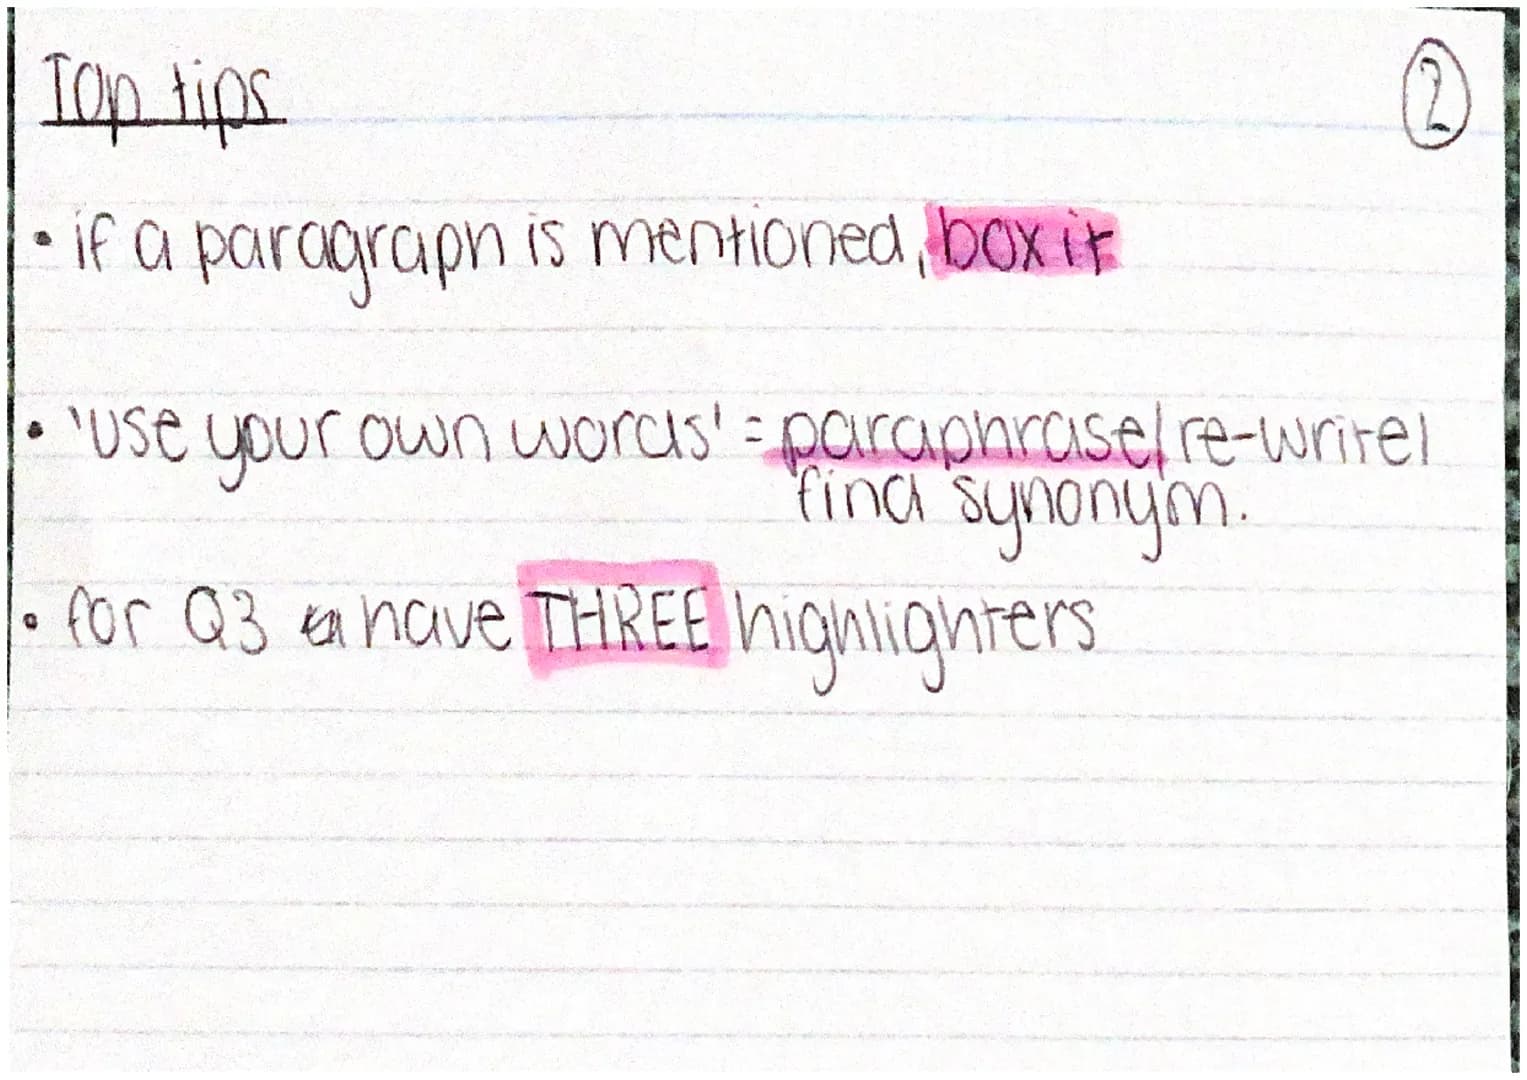 Top tips
2
• if a paragraph is mentioned, box it
• 'use your own words' = paraphrase/re-write/
find synonym.
• for Q3 have THREE highlighters